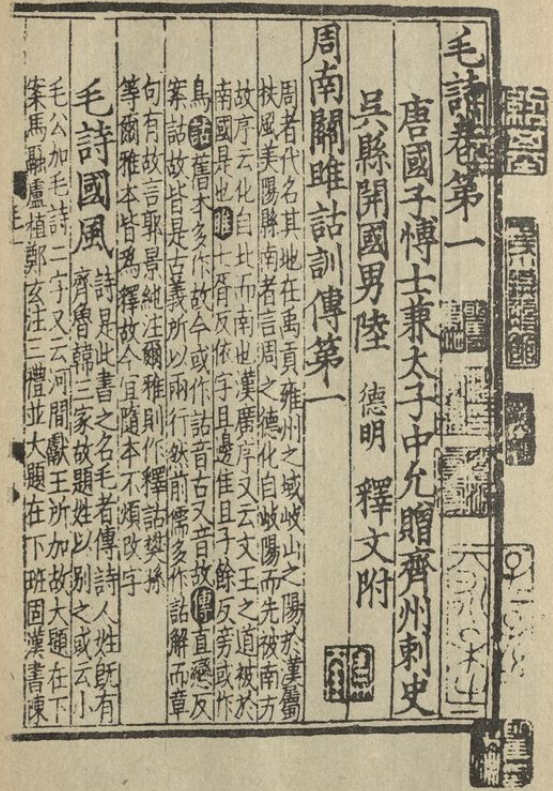 毛詩卷第一
唐國子博士兼太子中允贈齊州刺史
吳縣開國男陸 德明 釋文附
周南關雎詁訓傳第一
周者代名其地在禹貢雍州之域岐山之陽於漢屬
扶風美陽縣南者言周之德化自岐陽而先被南方
故序云化自北而南也漢廣序又云文王之道被於
南國是也雎七胥反依字且邊隹且子餘反旁或作
鳥詁舊本多作故今或作詁音古又音故傳直戀反
案詁故皆是古義所以兩行然前儒多作詁解而章
句有故言郭景純注爾雅則作釋詁樊孫
等爾雅本皆爲釋故今宜隨本不煩改字
毛詩國風
詩是此書之名毛者傳詩人姓既有
齊魯韓三家故題姓以別之或云小
毛公加毛詩二字又云河間獻王所加故大題在下
案馬融盧植鄭玄注三禮並大題在下班固漢書陳